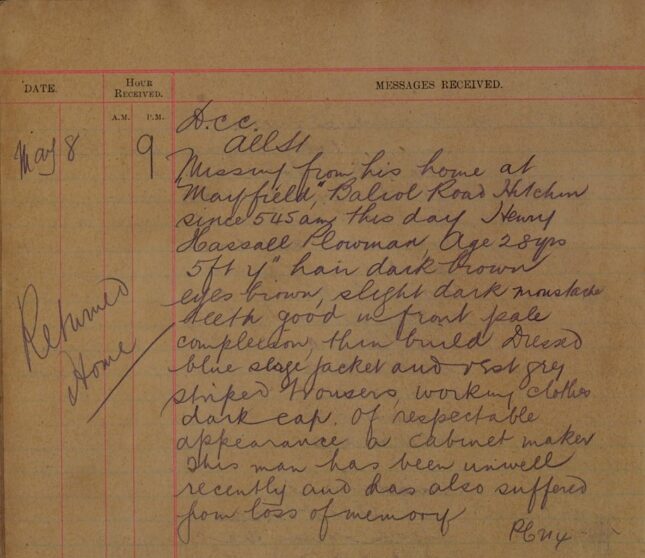 DATE.
HOUR RECEIVED.
MESSAGES RECEIVED.
A.M. P.M.
May 8
9
D.C.C.
All St
Missing from his home at
Mayfield", Baliol Road Hitchin
since 545am this day Henry
Hassall Plowman, Age 28yrs
5ft 4" hair dark brown
eyes brown, slight dark moustache
teeth good in front pale
complexion, thin build Dressed
blue serge jacket and vest grey
striped trousers, working clothes
dark cap. of respectable
appearance a cabinet maker
This man has been unwell
recently and has also suffered
from loss of memory
Returned
Home